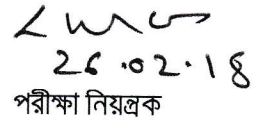 26.02.18
পরীক্ষা নিয়ন্ত্রক